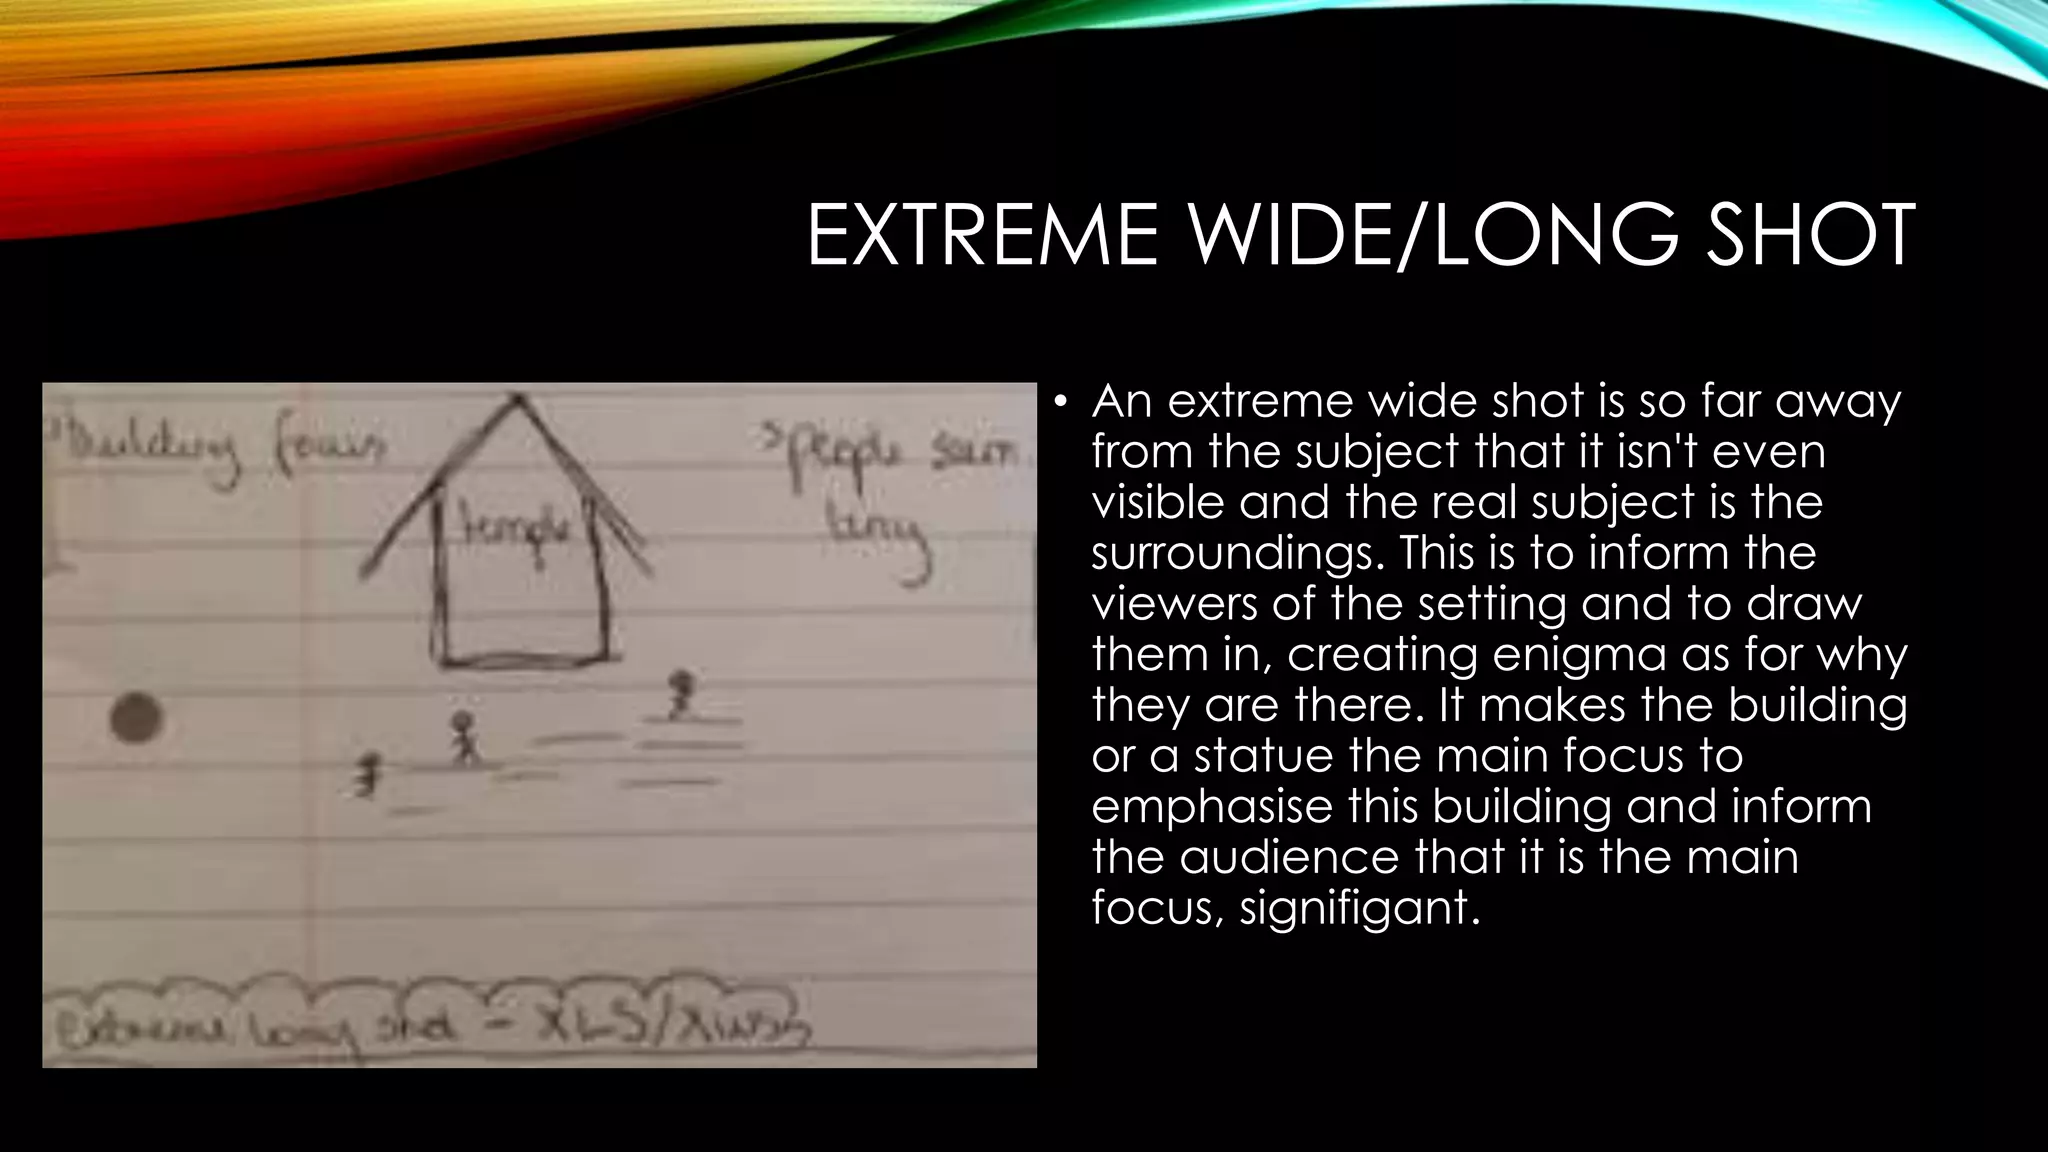 EXTREME WIDE/LONG SHOT
building focus
people seem
tiny
temple
extreme long shot - XLS/XWS
• An extreme wide shot is so far away
from the subject that it isn't even
visible and the real subject is the
surroundings. This is to inform the
viewers of the setting and to draw
them in, creating enigma as for why
they are there. It makes the building
or a statue the main focus to
emphasise this building and inform
the audience that it is the main
focus, signifigant.